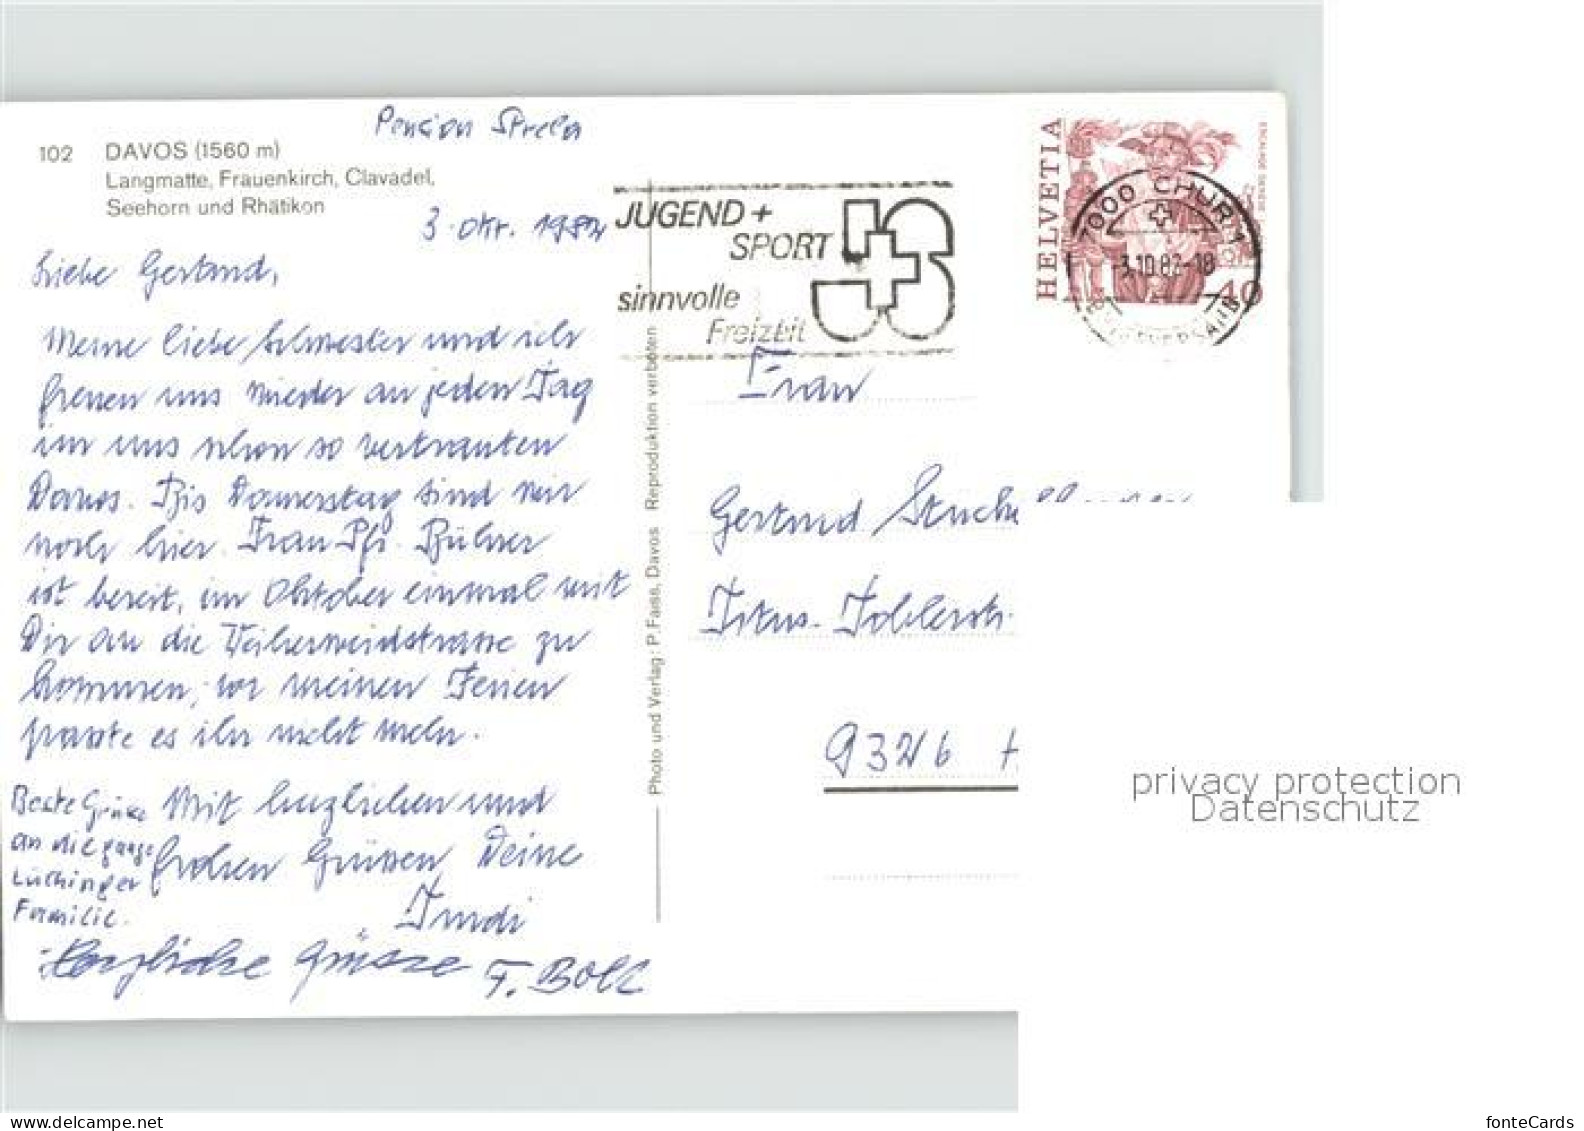 Pension Strela
102 DAVOS (1560 m)
Langmatte, Frauenkirch, Clavadel,
Seehorn und Rhätikon
3. Okt. 1982
Liebe Gertrud,
Meine liebe Schwester und ich
freuen uns wieder an jedem Tag
im uns schon so vertrauten
Davos. Bis Donnerstag sind wir
noch hier. Frau Pfr. Bühner
ist bereit, im Oktober einmal mit
Dir an die Veilherweidstrasse zu
kommen, vor meinen Ferien
passte es ihr nicht mehr.
Mit herzlichen und
frohen Grüssen Deine
Trudi
Beste Grüsse
an die ganze
Lüchinger
Familie.
Herzliche Grüsse F. Boll
Photo und Verlag: P. Faiss, Davos Reproduktion verboten
JUGEND +
SPORT
sinnvolle
Freizeit
HELVETIA
40
7000 CHUR 1
-3.10.82-18
BRIEFVERSAND
Frau
Gertrud
Titus-Toblerstr.
9326 H
privacy protection
Datenschutz
fonteCards